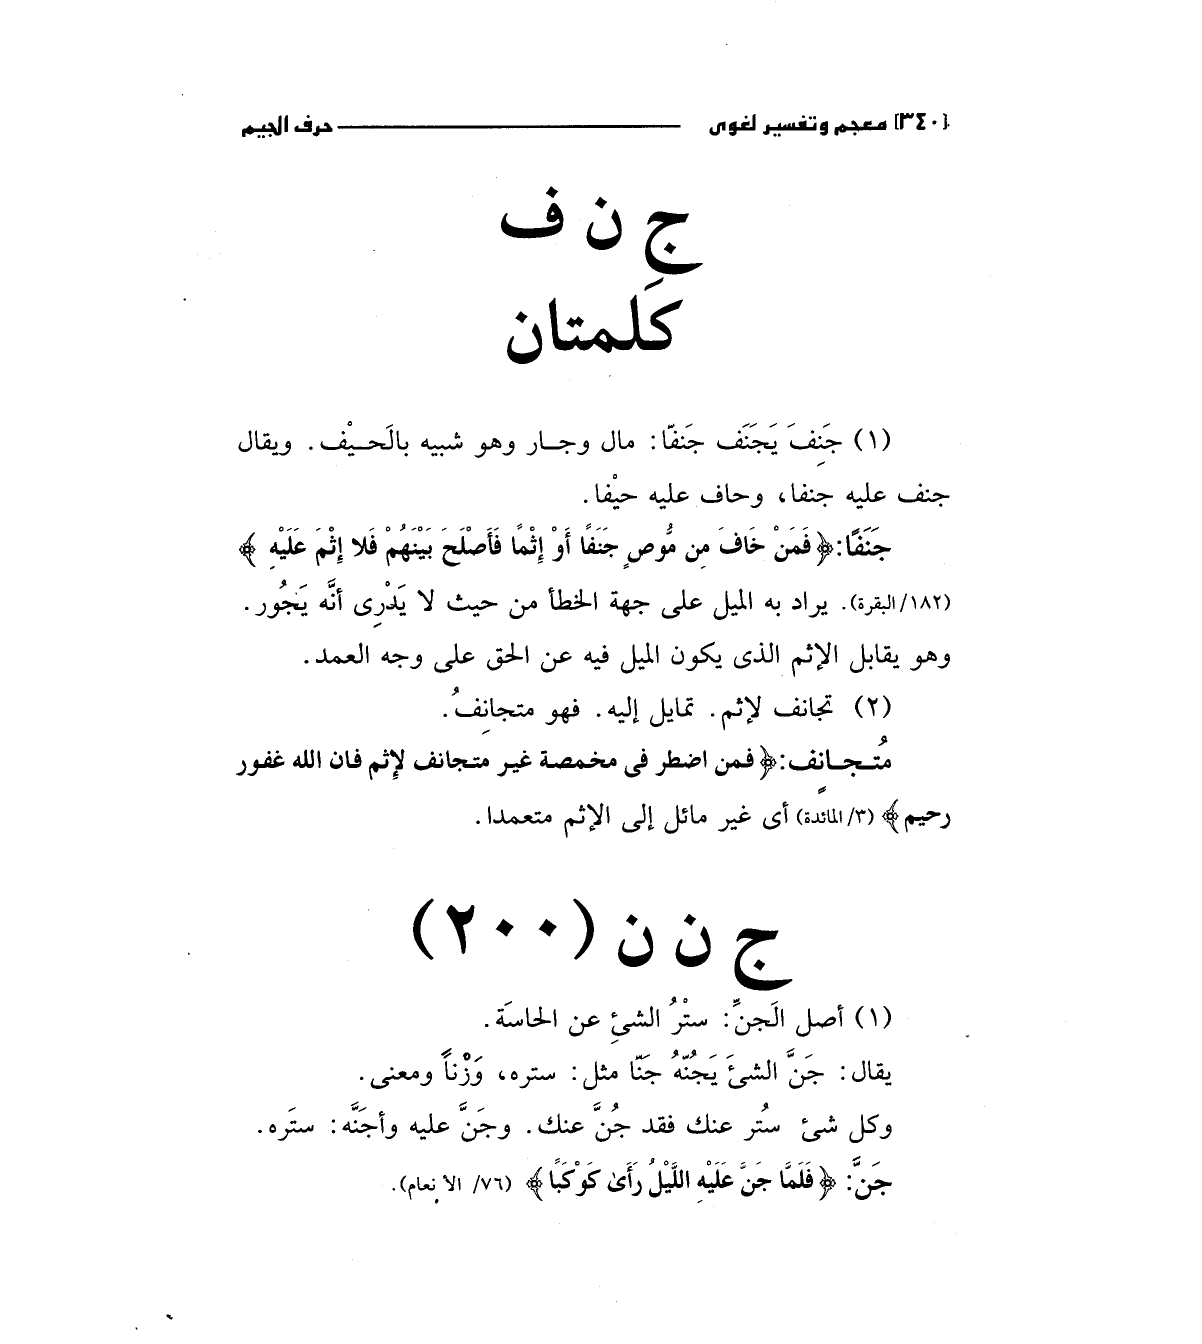 [٣٤٠] معجم وتفسير لغوى حرف الجيم
ج ن ف
كَلمتان
(١) جَنِفَ يَجَنَف جَنفًا: مال وجار وهو شبيه بالَحيْف. ويقال
جنف عليه جنفا، وحاف عليه حيْفا.
جَنَفًا: ﴿فَمَنْ خَافَ مِن مُّوصٍ جَنَفًا أَوْ إِثْمًا فَأَصْلَحَ بَيْنَهُمْ فَلا إِثْمَ عَلَيْهِ﴾
(١٨٢/البقرة). يراد به الميل على جهة الخطأ من حيث لا يَدْرِى أنَّه يَجُور.
وهو يقابل الإثم الذى يكون الميل فيه عن الحق على وجه العمد.
(٢) تجانف لإثم. تمايل إليه. فهو متجانِفُ.
مُتجانِف: ﴿فمن اضطر فى مخمصة غير متجانف لإِثم فان الله غفور
رحيم﴾ (٣/ المائدة) أى غير مائل إلى الإثم متعمدا.
ج ن ن (٢٠٠)
(١) أصل الَجنِّ: ستْرُ الشئِ عن الحاسَة.
يقال: جَنَّ الشئَ يَجُنّهُ جَنّا مثل: ستره، وَزْناً ومعنى.
وكل شئ سُتر عنك فقد جُنَّ عنك. وجَنَّ عليه وأجَنَّه: ستَره.
جَنَّ: ﴿فَلَمَّا جَنَّ عَلَيْهِ اللَّيْلُ رَأَىٰ كَوْكَبًا﴾ (٧٦/ الأنعام).